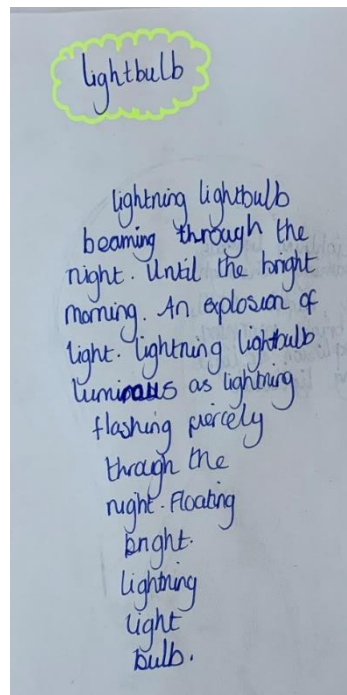 lightbulb
lightning lightbulb
beaming through the
night. Until the bright
morning. An explosion of
light. lightning lightbulb
luminous as lightning
flashing fiercely
through the
night. Floating
bright.
lightning
light
bulb.